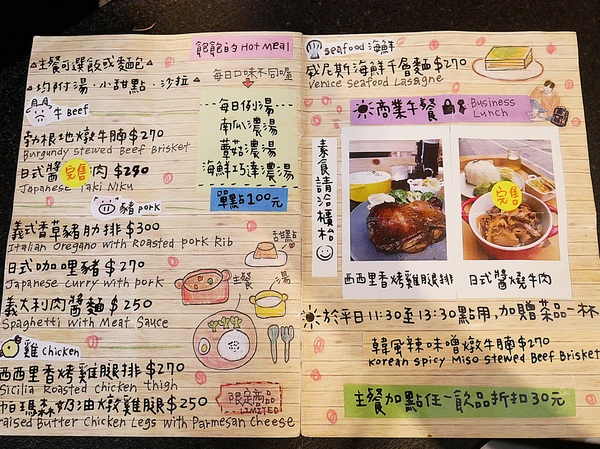 △主餐可選飯或麵包
△均附湯·小甜點·沙拉
飽飽的Hot Meal
每日口味不同喔
每日例湯
南瓜濃湯
蘑菇濃湯
海鮮巧達濃湯
單點100元
牛Beef
勃根地燉牛腩$270
Burgundy stewed Beef Brisket
日式醬 完售 肉 $290
Japanese Yaki Niku
豬pork
義式香草豬肋排$300
Italian oregano with Roasted pork Rib
日式咖哩豬 $270
Japanese curry with pork
義大利肉醬麵 $250
Spaghetti with Meat Sauce
甜點
主餐
湯
雞chicken
西西里香烤雞腿排 $270
Sicilia Roasted chicken thigh
帕瑪森奶油燉雞腿$250
raised Butter Chicken Legs with Parmesan Cheese
限定商品
LIMITED
seafood 海鮮
威尼斯海鮮千層麵 $270
Venice Seafood Lasagne
商業午餐
Business Lunch
素食請洽櫃枱
完售
西西里香烤雞腿排
日式醬燒牛肉
於平日11:30至13:30點用,加贈菜品一杯
韓風辣味噌燉牛腩$270
korean spicy Miso stewed Beef Brisket
主餐加點任一飲品折扣30元